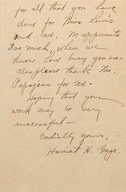 for all that you have
done for Miss Lewis
and me. We appreciate
too much, when we
know how busy you are -
also please thank Mr.
Papajean for me -
Hoping that your
work may be very
successful -
Cordially yours,
Harriet H. Gage.